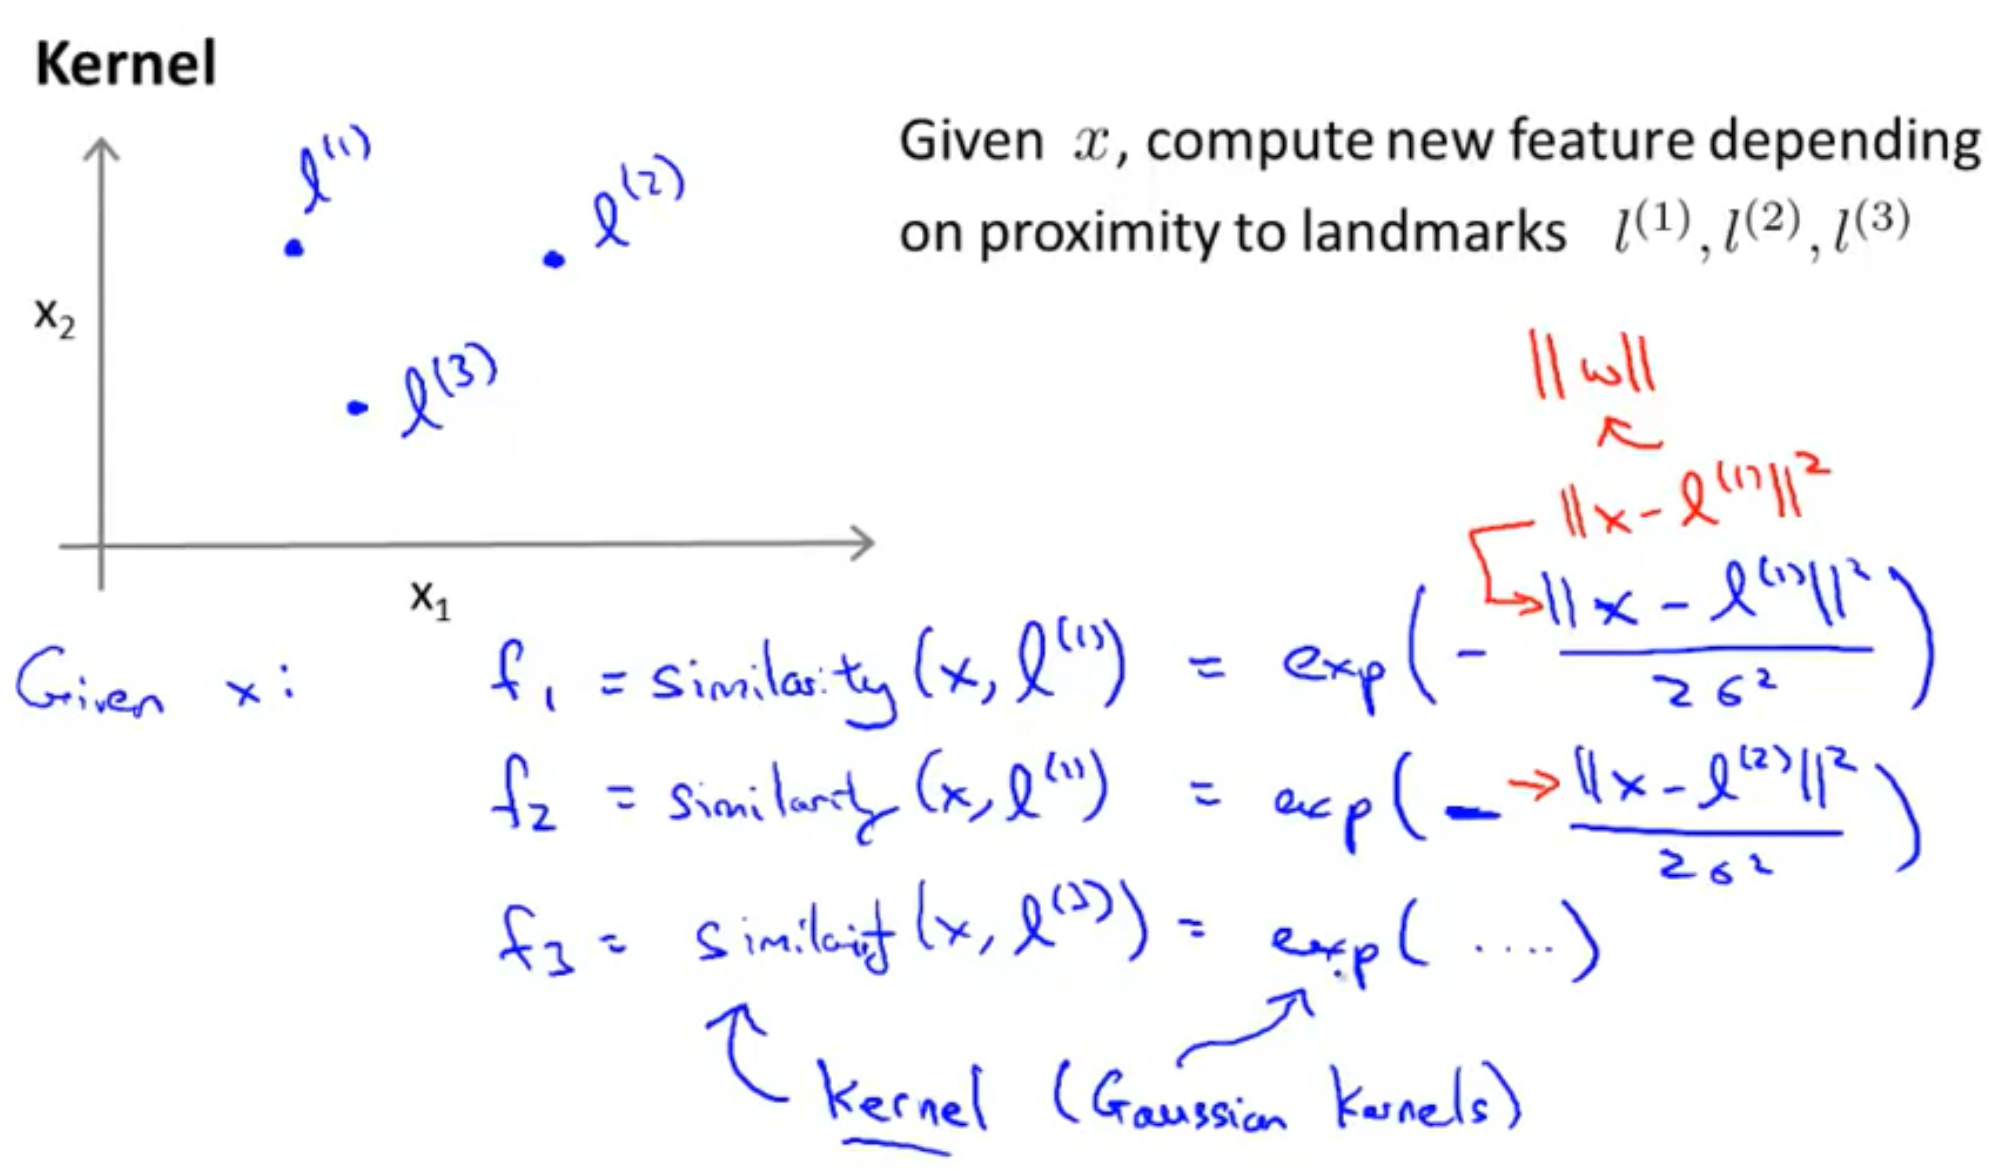 Kernel
l⁽¹⁾
l⁽²⁾
x₂
l⁽³⁾
x₁
Given x, compute new feature depending
on proximity to landmarks l⁽¹⁾, l⁽²⁾, l⁽³⁾
||w||
||x - l⁽¹⁾||²
Given x: f₁ = similarity(x, l⁽¹⁾) = exp(- ||x - l⁽¹⁾||² / 2σ²)
f₂ = similarity(x, l⁽¹⁾) = exp(- ||x - l⁽²⁾||² / 2σ²)
f₃ = similarity(x, l⁽³⁾) = exp( .... )
kernel (Gaussian kernels)